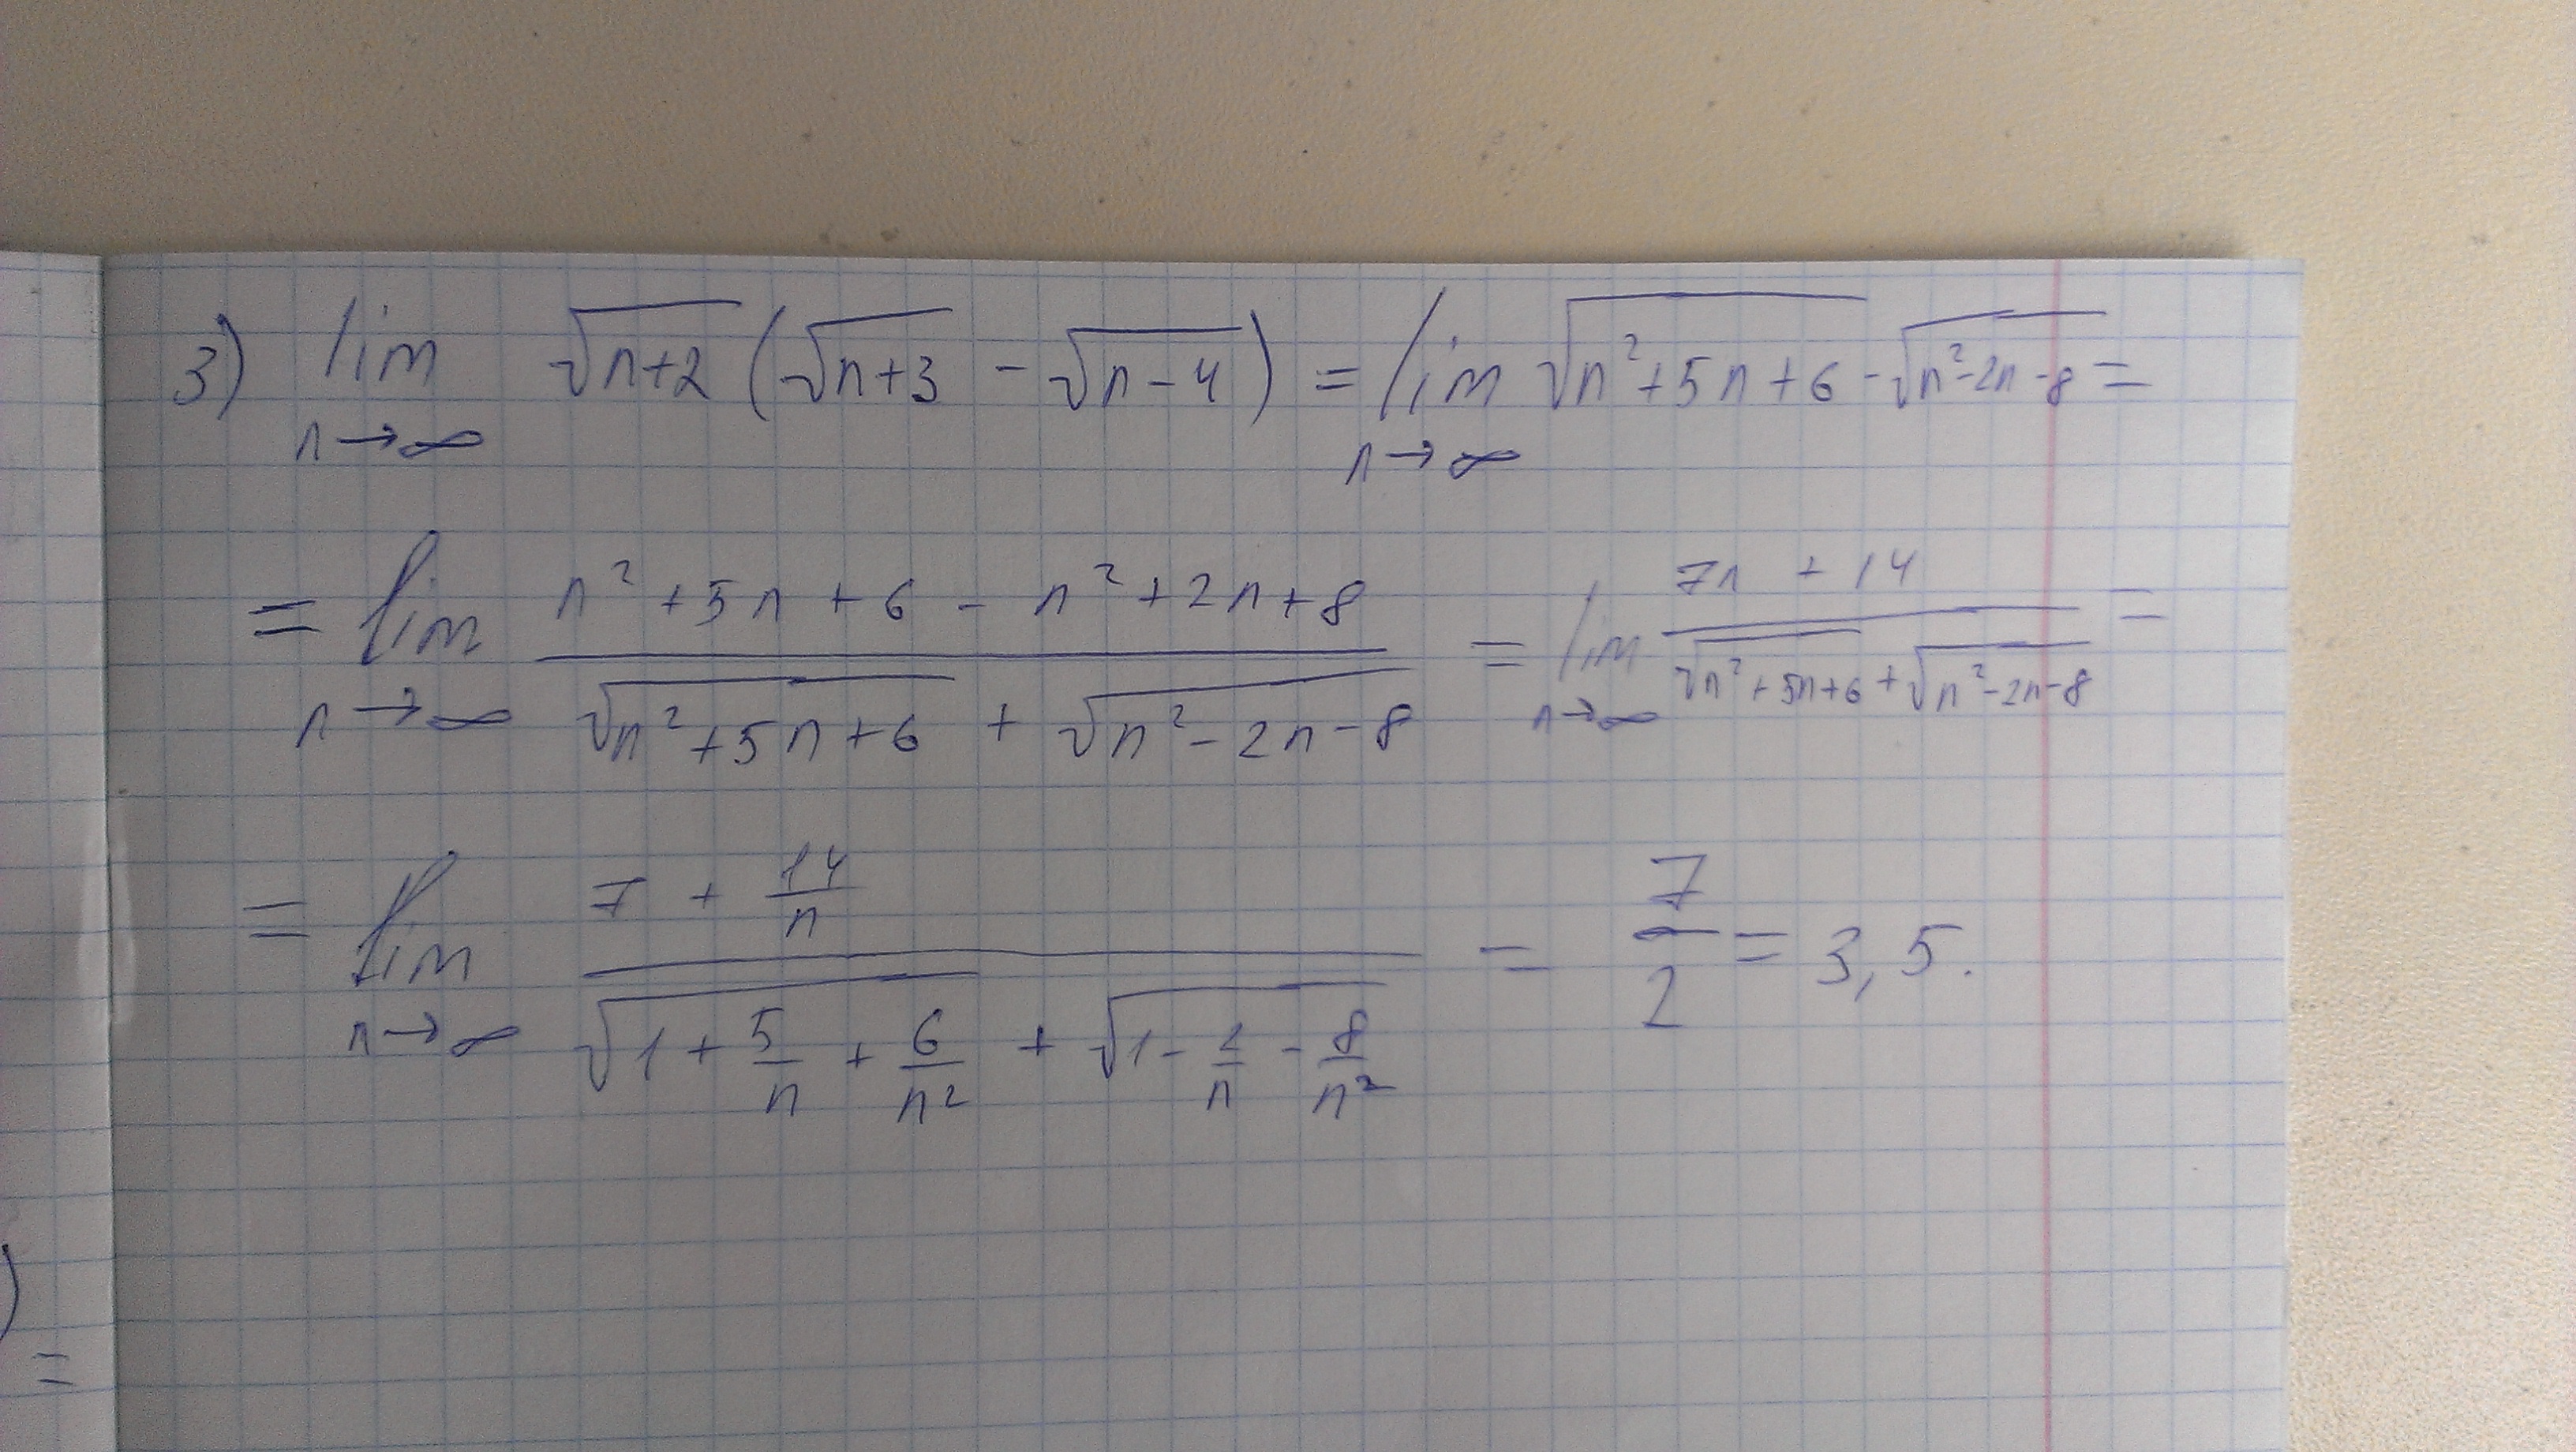 3) lim n→∞ √(n+2) (√(n+3) - √(n-4)) = lim n→∞ √(n²+5n+6) - √(n²-2n-8) =
= lim n→∞ (n²+5n+6-n²+2n+8)/(√(n²+5n+6) + √(n²-2n-8)) = lim n→∞ (7n+14)/(√(n²+5n+6) + √(n²-2n-8)) =
= lim n→∞ (7 + 14/n)/(√(1 + 5/n + 6/n²) + √(1 - 2/n - 8/n²)) = 7/2 = 3,5.
) 
=